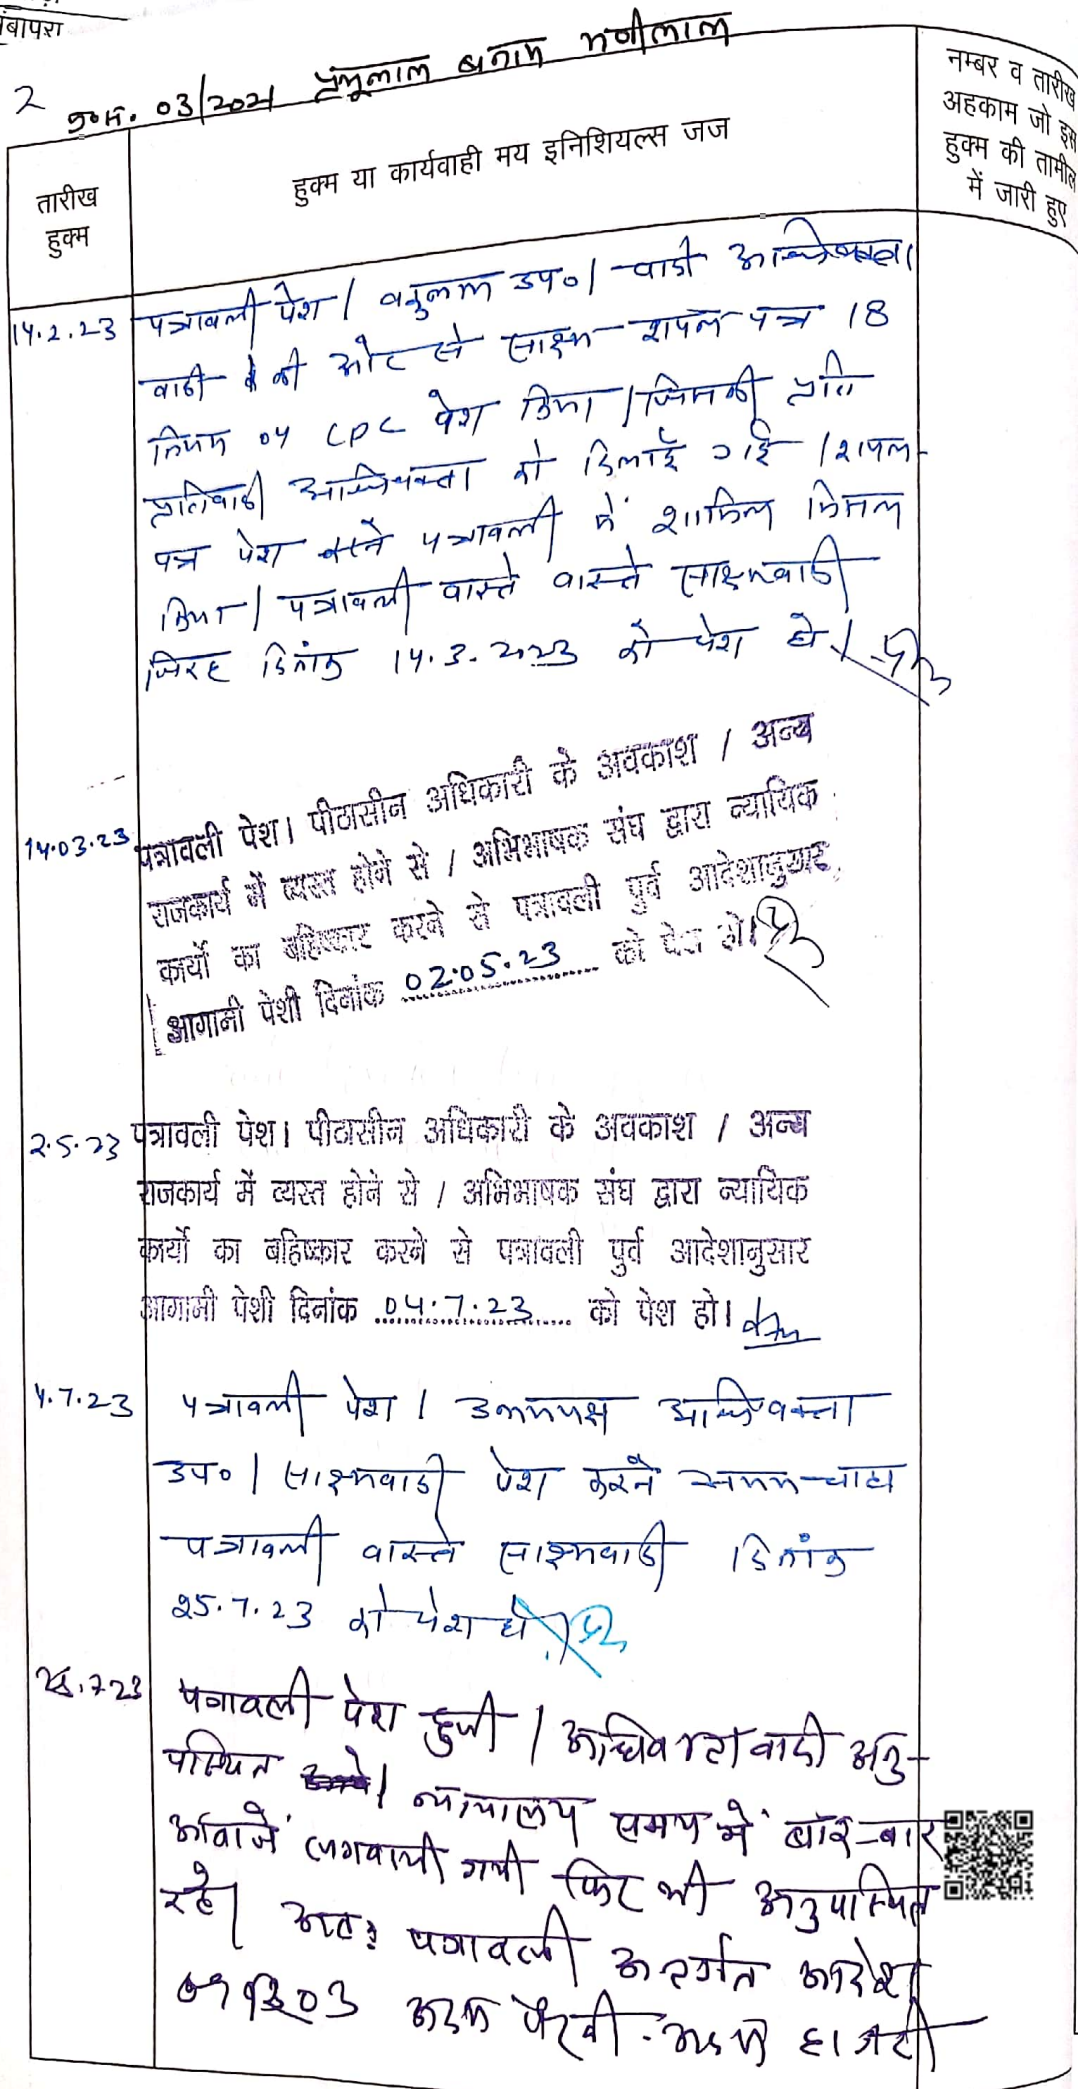 2
03/2021 प्रभूलाल बनाम मणीलाल
तारीख
हुक्म
हुक्म या कार्यवाही मय इनिशियल्स जज
नम्बर व तारीख
अहकाम जो इस
हुक्म की तामील
में जारी हुए
14.2.23 पत्रावली पेश। वकुलाल उप०। वादी अधिवक्ता।
वादी की ओर से साक्ष्य शपथ पत्र 18
नियम 04 CPC पेश किया। जिसकी प्रति
प्रतिवादी अधिवक्ता को दिलाई गई। शपथ
पत्र पेश करने पत्रावली में शामिल मिसल
किया। पत्रावली वास्ते वास्ते साक्ष्यवादी
जिरह दिनांक 14.3.2023 को पेश हो।
14.03.23 पत्रावली पेश। पीठासीन अधिकारी के अवकाश / अन्य
राजकार्य में व्यस्त होने से / अभिभाषक संघ द्वारा न्यायिक
कार्यो का बहिष्कार करने से पत्रावली पुर्व आदेशानुसार
आगामी पेशी दिनांक 02.05.23 को पेश हो।
2.5.23 पत्रावली पेश। पीठासीन अधिकारी के अवकाश / अन्य
राजकार्य में व्यस्त होने से / अभिभाषक संघ द्वारा न्यायिक
कार्यो का बहिष्कार करने से पत्रावली पुर्व आदेशानुसार
आगामी पेशी दिनांक 04.7.23 को पेश हो।
4.7.23 पत्रावली पेश। उभयपक्ष अधिवक्ता
उप०। साक्ष्यवादी पेश करने समय चाहा
पत्रावली वास्ते साक्ष्यवादी दिनांक
25.7.23 को पेश हो।
25.7.23 पत्रावली पेश हुयी। अधिवक्ता वादी अनु-
पस्थित न्यायालय समय में बार-बार
आवाजें लगवायी गयी फिर भी अनुपस्थित
रहे। अतः पत्रावली अन्तर्गत आदेश
03 अदम पैरवी अदम हाजरी